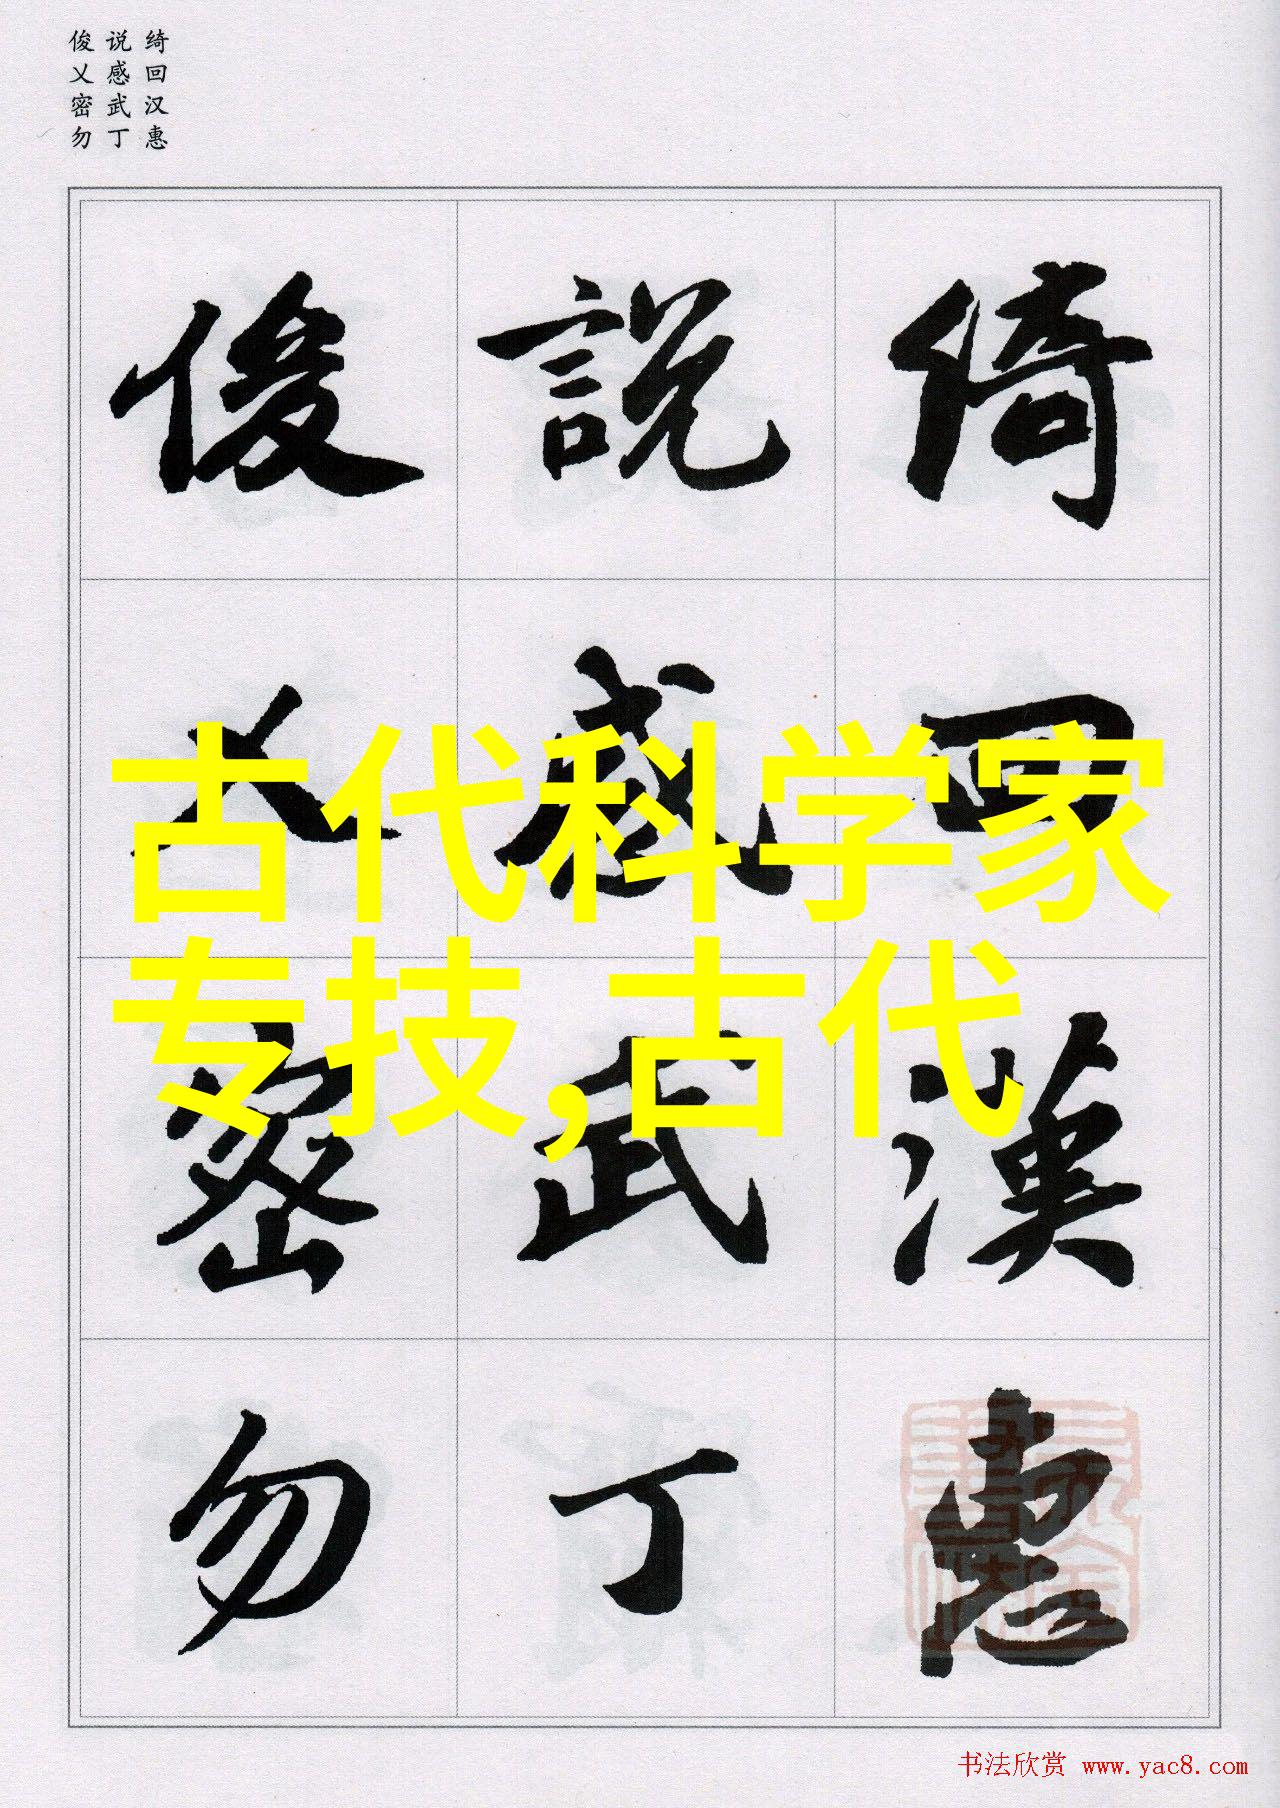 绮回汉惠
说感武丁
俊乂密勿
綺回漢惠
説感武丁
俊乂密勿
古代科学家
专技,古代
书法欣赏 www.yac8.com